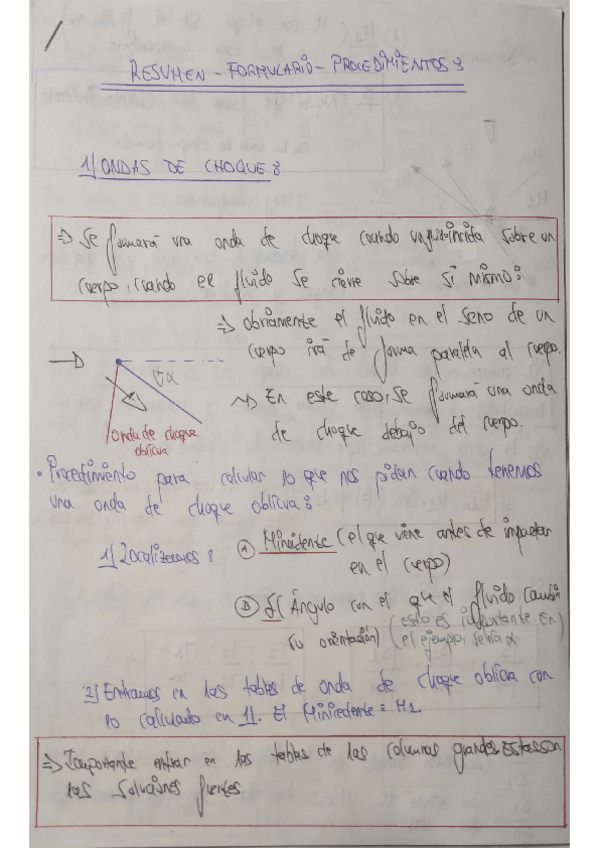 RESUMEN - FORMULARIO - PROCEDIMIENTOS:
1) ONDAS DE CHOQUE:
=> Se formará una onda de choque cuando un fluido incida sobre un
cuerpo, cuando el fluido se cierre sobre sí mismo:
=> Obviamente el fluido en el seno de un
cuerpo irá de forma paralela al cuerpo.
α
~> En este caso, se formará una onda
de choque debajo del cuerpo.
Onda de choque
oblicua
• Procedimiento para calcular lo que nos pidan cuando tenemos
una onda de choque oblicua:
1) Localizamos:
Ⓐ Mincidente (el que viene antes de impactar
en el cuerpo)
Ⓑ δ (Ángulo con el que el fluido cambia
su orientación) (esto es importante. En
el ejemplo, sería α)
2) Entramos en las tablas de onda de choque oblicua con
lo calculado en 1). El Mincidente = M1.
=> Importante entrar en las tablas de las columnas grandes. Estas son
las soluciones fuertes